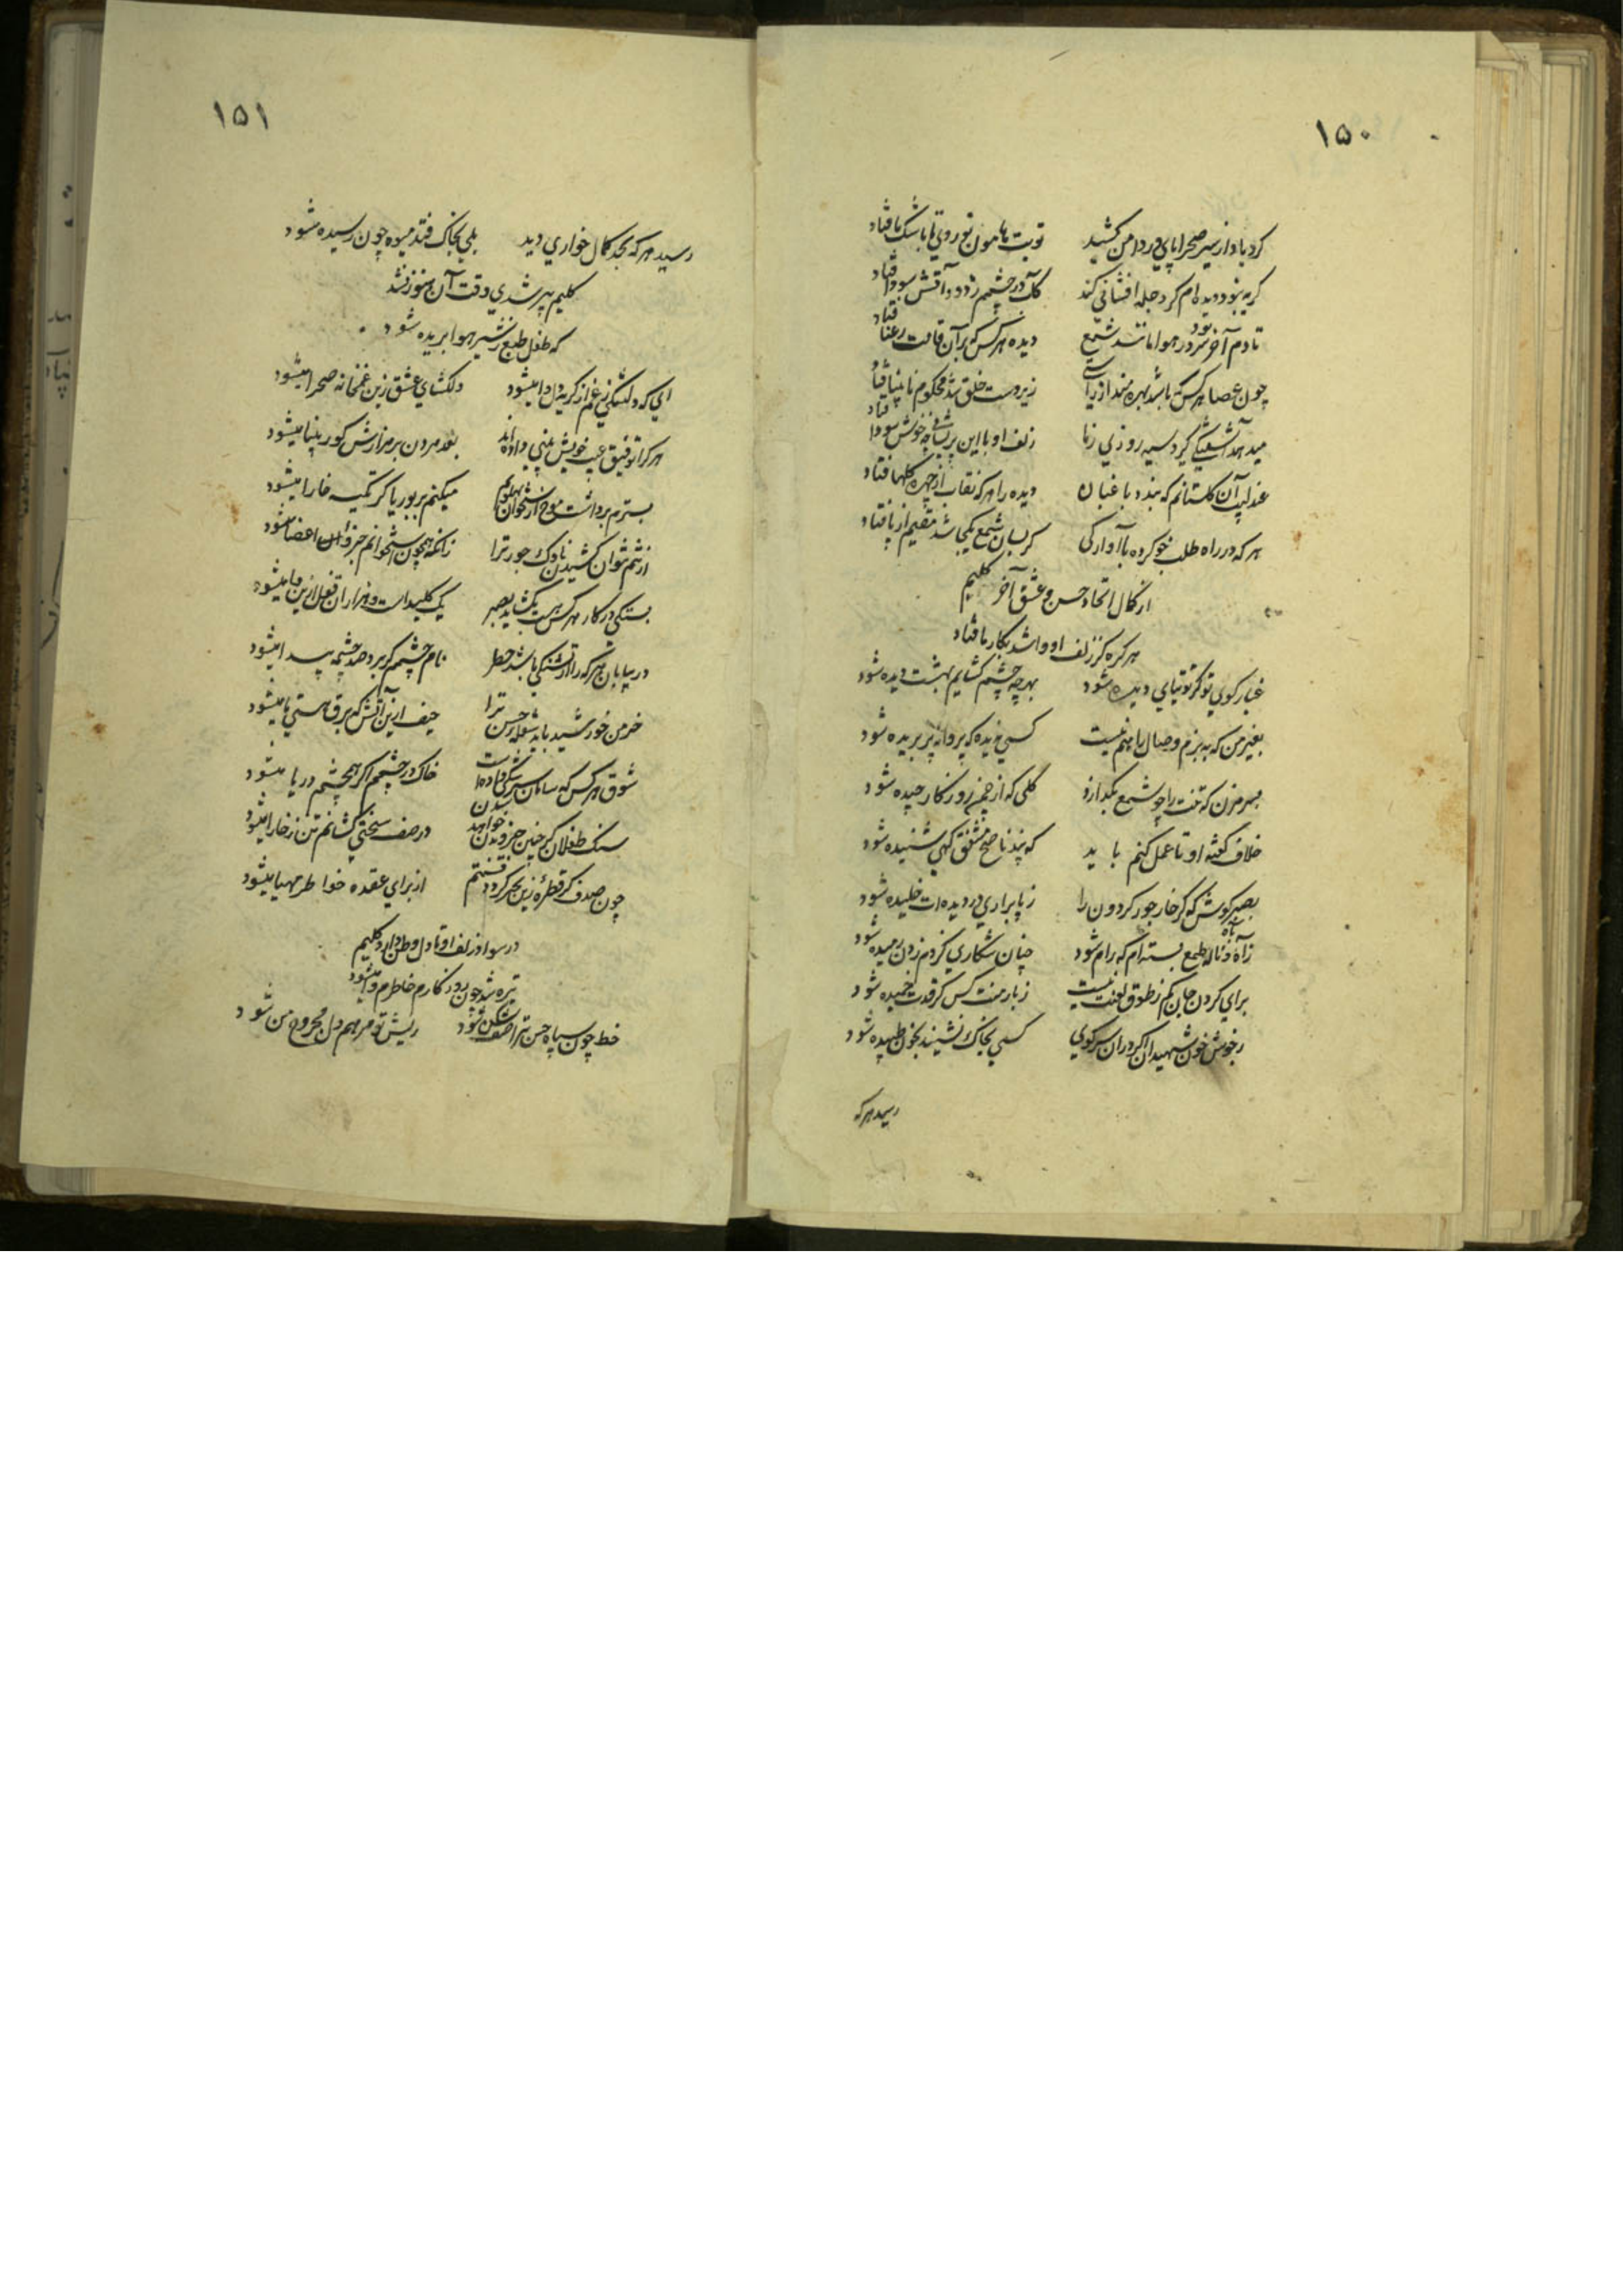 ۱۵۰
کردباد از سیر صحرا پای در دامن کشید نوبت هامون نوردی تا باشک ما فتاد
کریه نبود دیده ام کر دجله افشانی کند کآب در چشمم ز دود آتش سودا فتاد
تا دم آخر بود سر در هوا مانند شمع دیده هر کس که بر آن قامت رعنا فتاد
چون عصا هر کس که باشد بهره مند از راستی زیردست خلق شد محکوم نابینا فتاد
میدهد آشفتگی کرد سیه روزی زما زلف او با این پریشانی چه خوش سودا فتاد
عندلیب آن کلستانم که بندد باغبان دیده را هر که نقاب از چهره کلها فتاد
هر که در راه طلب خو کرده با آوارکی کر بسان شمع یکجا شد مقیم از پا فتاد
از کمال اتحاد حسن و عشق آخر کلیم
هر کره کز زلف او وا شد بکار ما فتاد
غبار کوی تو کر توتیای دیده شود بهر چه چشم کشایم بهشت دیده شود
بغیر من که به بزم وصال راهم نیست کسی ندیده که پروانه پر بریده شود
بسر مزن که تنت را چو شمع بکدازد کلی که از چمن روزکار چیده شود
خلاف کفته او تا عمل کنم باید که پند ناصح مشفق کهی شنیده شود
بصبر کوش که کر خار جور کردون را ز پا براری در دیده ات خلیده شود
ز آه و ناله طمع بسته ام که رام شود چنان شکاری کز دم زدن رمیده شود
برای کردن جان کم ز طوق لعنت نیست ز بار منت کس کر قدت خمیده شود
ز جوش خون شهیدان اکر در آن سر کوی کسی بخاک نشیند بخون طپیده شود
رسید هر که
۱۵۱
رسید هر که بحد کمال خواری دید بلی بخاک فتد میوه چون رسیده شود
کلیم پیر شدی وقت آن هنوز نشد
که طفل طبع ز شیر هوا بریده شود
ای که دلتنکی غم از کریه دل وا میشود دلکشای عشق زین غمخانه صحرا میشود
هر کرا توفیق عیب خویش بینی داده اند بعد مردن بر مزارش کور بینا میشود
بسترم برداشت موج از استخوان پهلویم میکنم بر بوریا کر تکیه خارا میشود
از تنم نتوان کشیدن ناوک جور ترا زانکه همچون استخوانم جزو اعضا میشود
بستکی در کار هر کس هست بکشاید بصبر یک کلید است و هزاران قفل ازین وا میشود
در بیابان هر کرا از تشنکی باشد خطر نام چشمم کر برد صد چشمه پیدا میشود
خرمن خورشید باید شعله حسن ترا حیف ازین آتش که برق هستی ما میشود
شوق هر کس که سامان سرشکی داده است خاک در چشمم اکر همچشم دریا میشود
سنک طفلان کر چنین جزو بدن خواهد شدن در صف سختی کشانم تن ز خارا میشود
چون صدف کر قطره زین بحر کردد قسمتم از برای عقده خواطر مهیا میشود
در سواد زلف او تا دل وطن دارد کلیم
تیره شد چون روزکارم خاطرم وا میشود
خط چون سپاه حسن ترا صف شکن شود ریش تو مرهم دل مجروح من شود